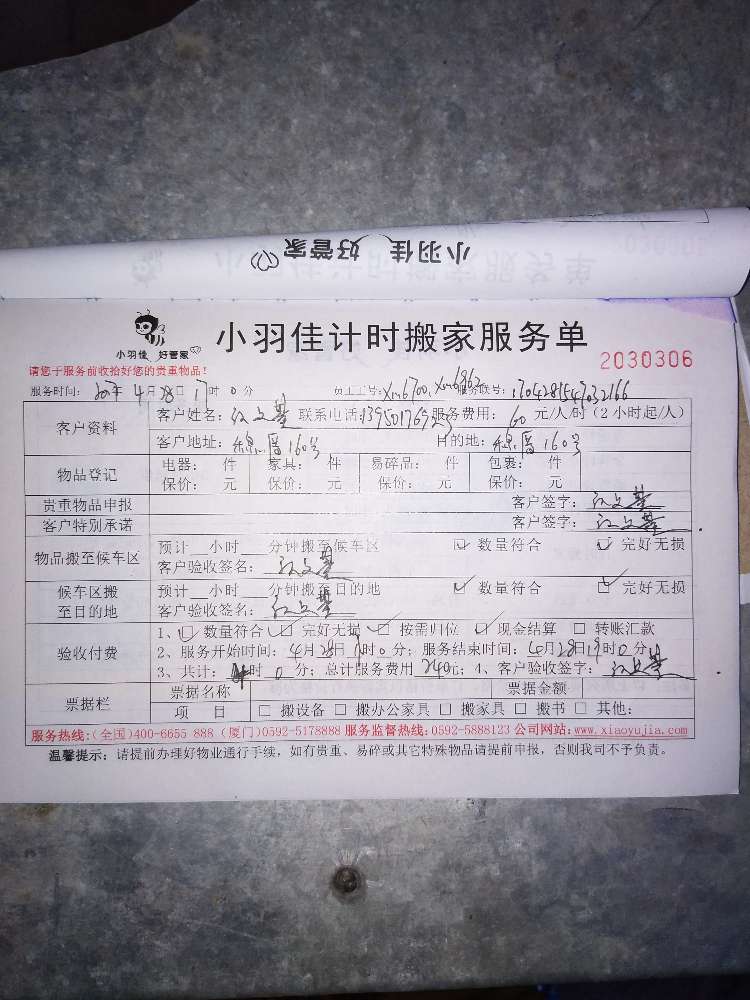 小羽佳 好管家
小羽佳 好管家
小羽佳计时搬家服务单
2030306
请您于服务前收拾好您的贵重物品！
服务时间： 4月28日17时0分 员工工号：xm6700、xm6962 服务联号：1704281547032166
客户资料
客户姓名：江文基 联系电话：13950176923 服务费用：60元/人/时（2小时起/人）
客户地址： 160号 目的地： 160号
物品登记
电器： 件 家具： 件 易碎品： 件 包裹： 件
保价： 元 保价： 元 保价： 元 保价： 元
贵重物品申报 客户签字：江文基
客户特别承诺 客户签字：江文基
物品搬至候车区
预计__小时___分钟搬至候车区 ☑ 数量符合 ☑ 完好无损
客户验收签名：江文基
候车区搬至目的地
预计__小时___分钟搬至目的地 ☑ 数量符合 ☑ 完好无损
客户验收签名：江文基
验收付费
1、☑ 数量符合 ☑ 完好无损 ☑ 按需归位 ☑ 现金结算 □ 转账汇款
2、服务开始时间：4月28日17时0分；服务结束时间：4月28日19时0分；
3、共计： 时0分；总计服务费用240元；4、客户验收签字：江文基
票据栏
票据名称 票据金额
项 目 □ 搬设备 □ 搬办公家具 □ 搬家具 □ 搬书 □ 其他：
服务热线：(全国)400-6655 888 (厦门)0592-5178888 服务监督热线：0592-5888123 公司网站：www.xiaoyujia.com
温馨提示：请提前办理好物业通行手续，如有贵重、易碎或其它特殊物品请提前申报，否则我司不予负责。